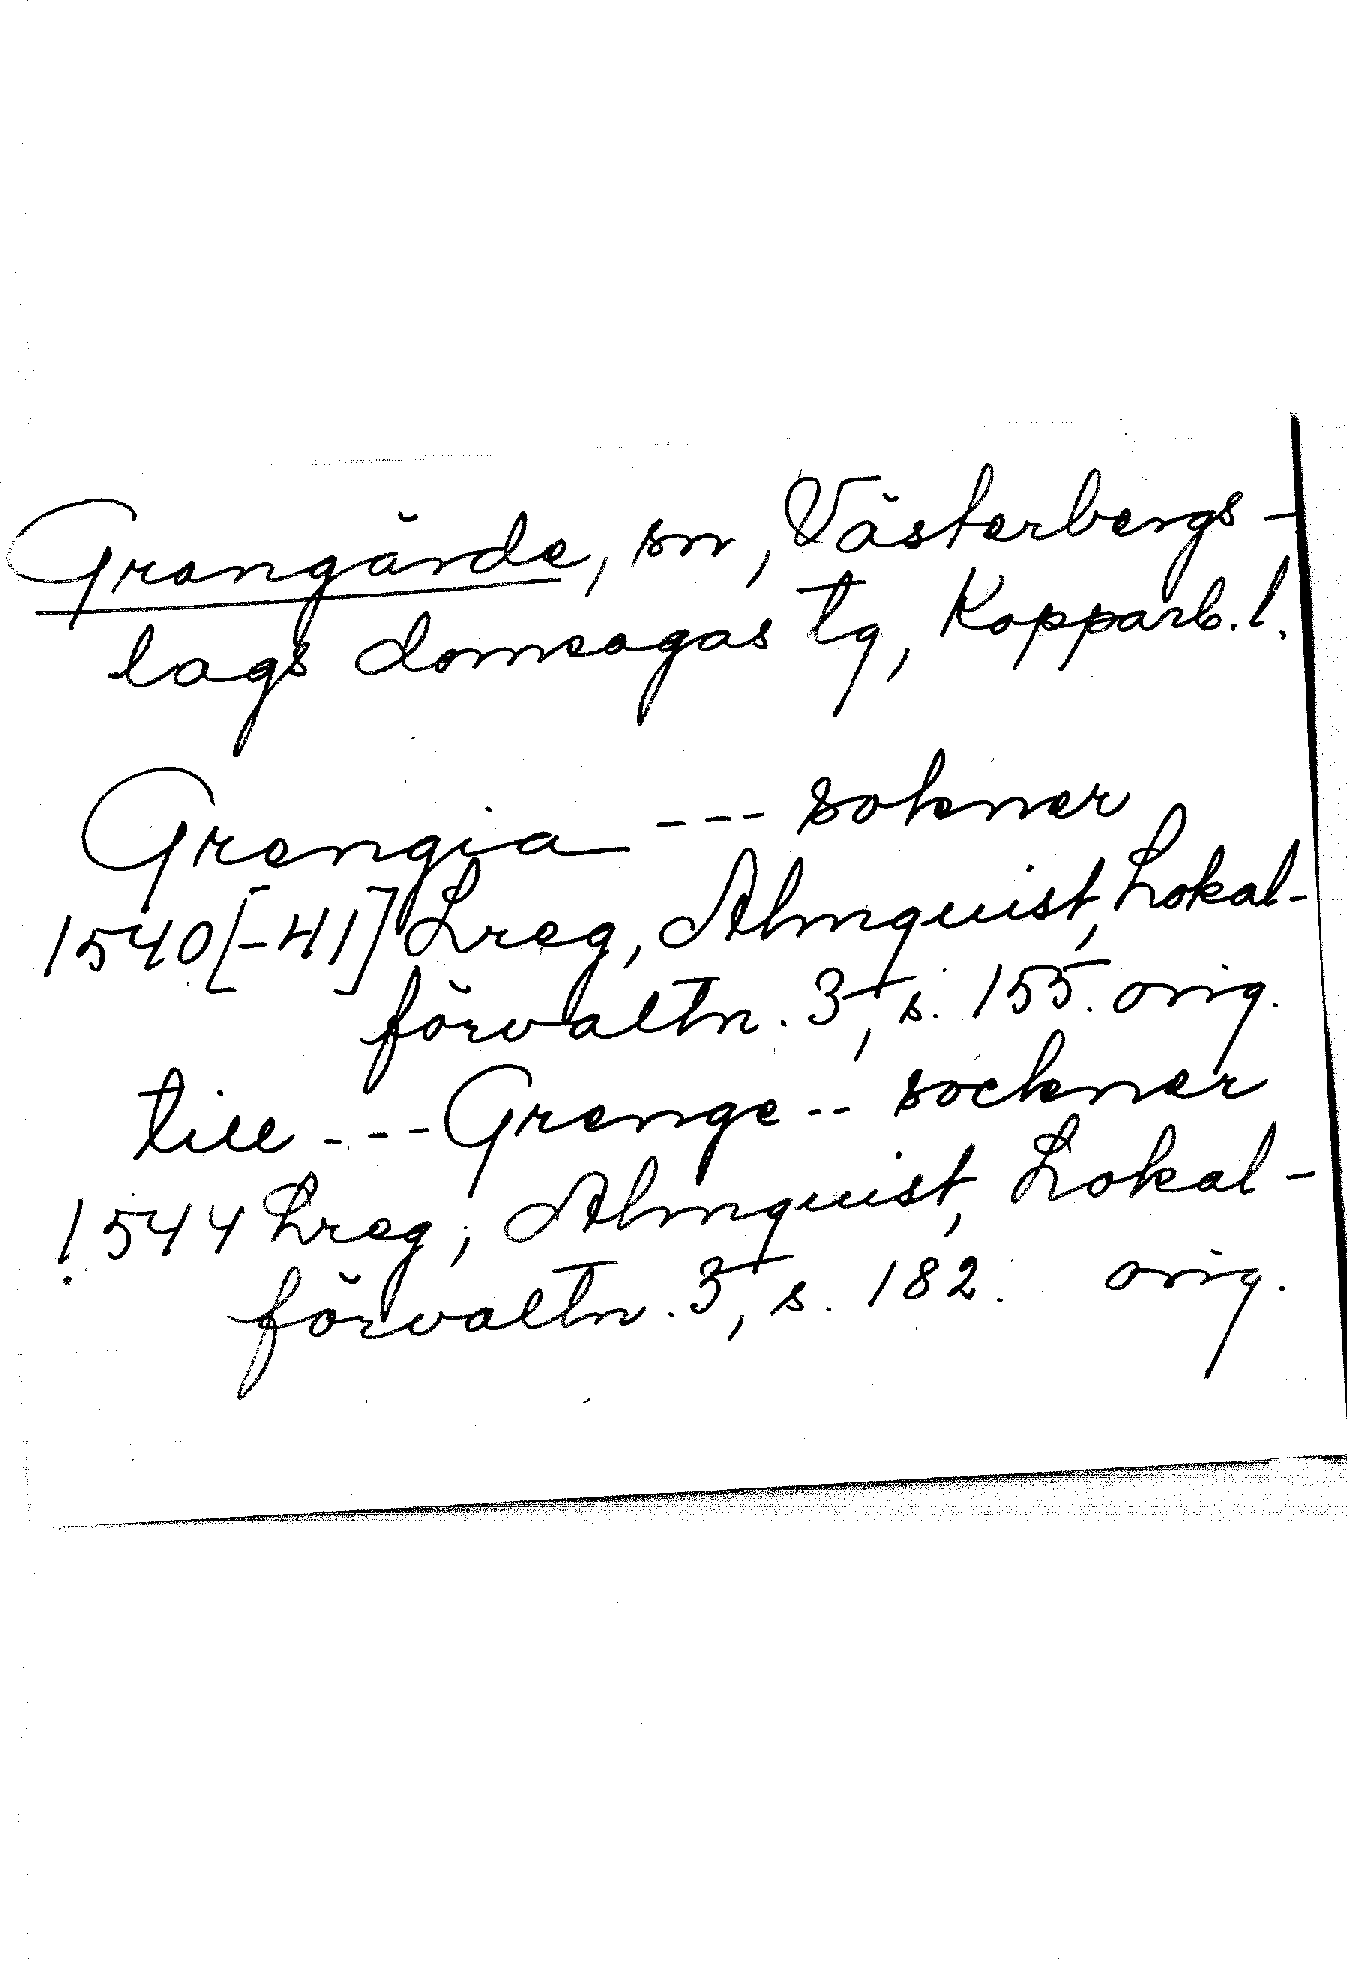 Grangärde, sn, Västerbergs-
lags domsagas tg, Kopparb. l.
Grengia --- sokner
1540[-41] Lreg, Almquist, Lokal-
förvaltn. 3, s. 155. orig.
till --- Grenge -- sockner
1544 Lreg, Almquist, Lokal-
förvaltn. 3, s. 182. orig.